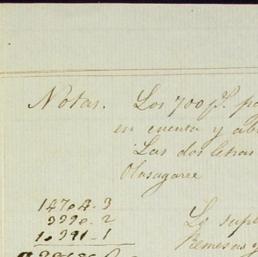 Notas. Los 700 ps. pa
en cuenta y ab
Las dos letras
Olasagarre
1470.4.3
999.. 2
1.. 391.. 1
Lo supl
Remesas y